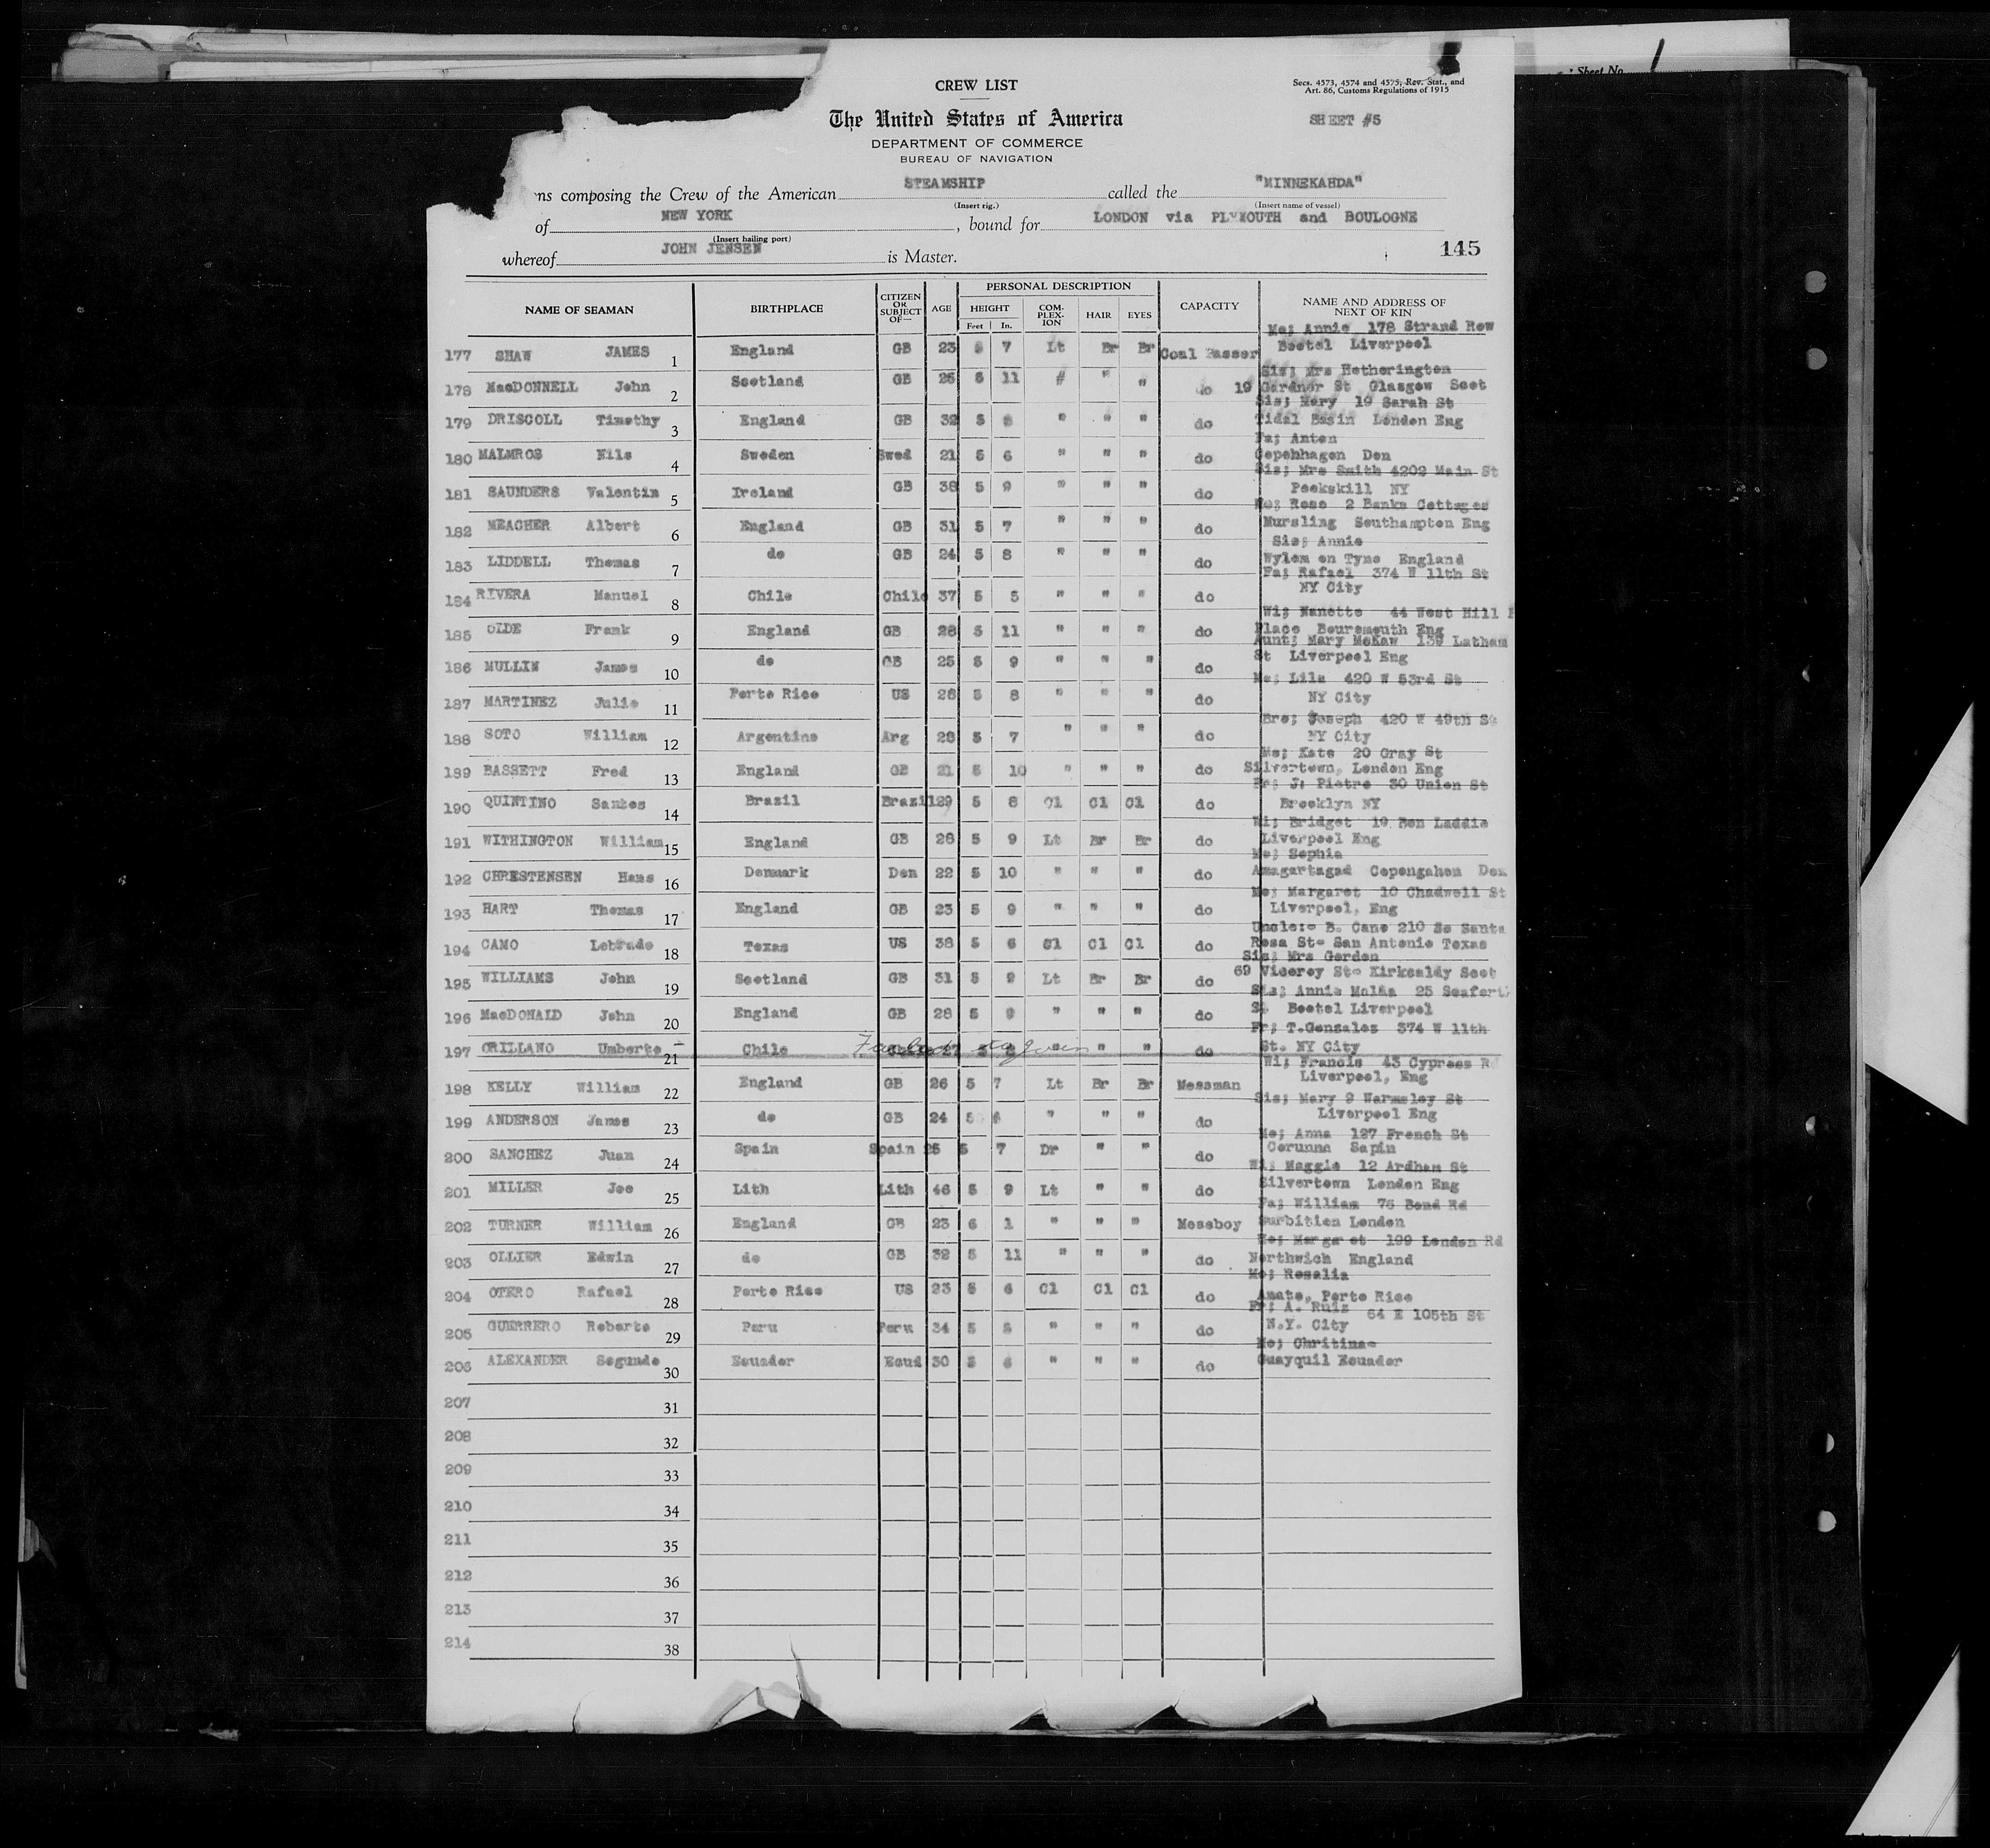 Sheet No.
CREW LIST
Secs. 4573, 4574 and 4575, Rev. Stat., and
Art. 86, Customs Regulations of 1915
The United States of America
SHEET #5
DEPARTMENT OF COMMERCE
BUREAU OF NAVIGATION
ns composing the Crew of the American STEAMSHIP called the "MINNEKAHDA"
(Insert rig.) (Insert name of vessel)
of NEW YORK, bound for LONDON via PLYMOUTH and BOULOGNE
(Insert hailing port)
whereof JOHN JENSEN is Master.
145
NAME OF SEAMAN BIRTHPLACE CITIZEN OR SUBJECT OF— AGE PERSONAL DESCRIPTION CAPACITY NAME AND ADDRESS OF NEXT OF KIN
HEIGHT COM-PLEX-ION HAIR EYES
Feet In.
Mo; Annie 178 Strand Row
177 SHAW JAMES 1 England GB 23 5 7 Lt Br Br Coal Passer Bootel Liverpool
Sis; Mrs Hetherington
178 MacDONNELL John 2 Scotland GB 25 5 11 " " " do 19 Gardner St Glasgow Scot
Sis; Mary 19 Sarah St
179 DRISCOLL Timothy 3 England GB 32 5 8 " " " do Tidal Basin London Eng
Fa; Anton
180 MALMROS Nils 4 Sweden Swed 21 5 6 " " " do Copenhagen Den
Sis; Mrs Smith 4202 Main St
181 SAUNDERS Valentin 5 Ireland GB 38 5 9 " " " do Peekskill NY
Mo; Rose 2 Banks Cottages
182 MEACHER Albert 6 England GB 31 5 7 " " " do Nursling Southampton Eng
Sis; Annie
183 LIDDELL Thomas 7 do GB 24 5 8 " " " do Wylem on Tyne England
Fa; Rafael 374 W 11th St
184 RIVERA Manuel 8 Chile Chile 37 5 5 " " " do NY City
Wi; Nanette 44 West Hill
185 OLDE Frank 9 England GB 28 5 11 " " " do Place Bouremouth Eng
Aunt; Mary McKaw 139 Latham
186 MULLIN James 10 do GB 25 5 9 " " " do St Liverpool Eng
Mo; Lila 420 W 53rd St
187 MARTINEZ Julio 11 Porto Rico US 28 5 8 " " " do NY City
Bro; Joseph 420 W 49th St
188 SOTO William 12 Argentine Arg 28 5 7 " " " do NY City
Mo; Kate 20 Gray St
189 BASSETT Fred 13 England GB 21 5 10 " " " do Silvertown, London Eng
Fr; J; Pietro 30 Union St
190 QUINTINO Santos 14 Brazil Brazil 29 5 8 Cl Cl Cl do Brooklyn NY
Wi; Bridget 19 Ben Laddie
191 WITHINGTON William 15 England GB 28 5 9 Lt Br Br do Liverpool Eng
Mo; Sophia
192 CHRESTENSEN Hans 16 Denmark Den 22 5 10 " " " do Amagartagad Copengahen Den
Mo; Margaret 10 Chadwell St
193 HART Thomas 17 England GB 23 5 9 " " " do Liverpool, Eng
Uncle:- B. Cano 210 So Santa
194 CAMO Lebrado 18 Texas US 38 5 6 Cl Cl Cl do Rosa St- San Antonio Texas
Sis; Mrs Gordon
195 WILLIAMS John 19 Scotland GB 31 5 9 Lt Br Br do 69 Viceroy St- Kirkcaldy Scot
Sis; Annie 25 Seaforth
196 MacDONALD John 20 England GB 28 5 9 " " " do St Bootel Liverpool
Fr; T.Gonzales 374 W 11th
197 ORILLANO Umberto 21 Chile 27 " " " do St. NY City
Wi; Francis 43 Cypress Rd
198 KELLY William 22 England GB 26 5 7 Lt Br Br Messman Liverpool, Eng
Sis; Mary 9 Warmsley St
199 ANDERSON James 23 do GB 24 5 6 " " " do Liverpool Eng
Mo; Anna 127 French St
200 SANCHEZ Juan 24 Spain Spain 25 5 7 Dr " " do Corunna Sapin
Wi; Maggie 12 Ardham St
201 MILLER Joe 25 Lith Lith 46 5 9 Lt " " do Silvertown London Eng
Fa; William 75 Bond Rd
202 TURNER William 26 England GB 23 6 1 " " " Messboy Surbition London
Mo; Margaret 199 London Rd
203 OLLIER Edwin 27 do GB 32 5 11 " " " do Northwich England
Mo; Rosalia
204 OTERO Rafael 28 Porto Rico US 23 5 6 Cl Cl Cl do Amate, Porto Rico
Fr; A. Ruiz 64 E 105th St
205 GUERRERO Roberto 29 Peru Peru 34 5 5 " " " do N.Y. City
Mo; Chritina-
206 ALEXANDER Segundo 30 Ecuador Ecud 30 5 6 " " " do Guayquil Ecuador
207 31
208 32
209 33
210 34
211 35
212 36
213 37
214 38